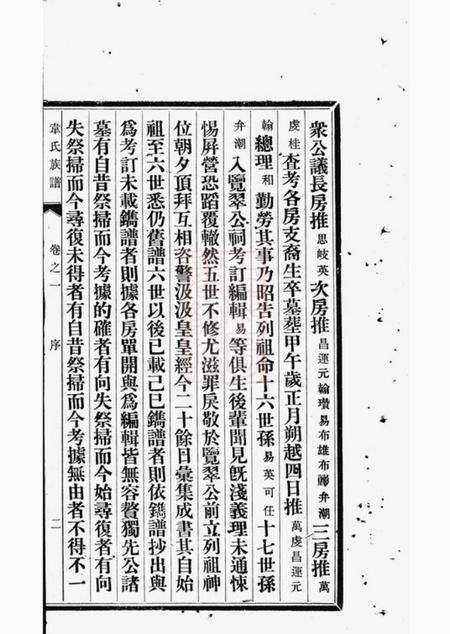 衆公議長房推思岐英次房推昌運元翰瓚易布雄布彝弁潮三房推萬
虔桂查考各房支裔生卒墓塟甲午歲正月朔越四日推萬虔昌運元
翰總理和勤勞其事乃昭告列祖命十六世孫易英可任十七世孫
弁潮入覽翠公祠考訂編輯易等俱生後輩聞見旣淺義理未通悚
惕屏營恐蹈覆轍然五世不修尤滋罪戾敬於覽翠公前立列祖神
位朝夕頂拜互相咨警汲汲皇皇經今二十餘日彙集成書其自始
祖至六世悉仍舊譜六世以後已載己巳鐫譜者則依鐫譜抄出與
爲考訂未載鐫譜者則據各房單開與爲編輯皆無容贅獨先公諸
墓有自昔祭掃而今考據的確者有向失祭掃而今始尋復者有向
失祭掃而今尋復未得者有自昔祭掃而今考據無由者不得不一
韋氏族譜
卷之一
序
二